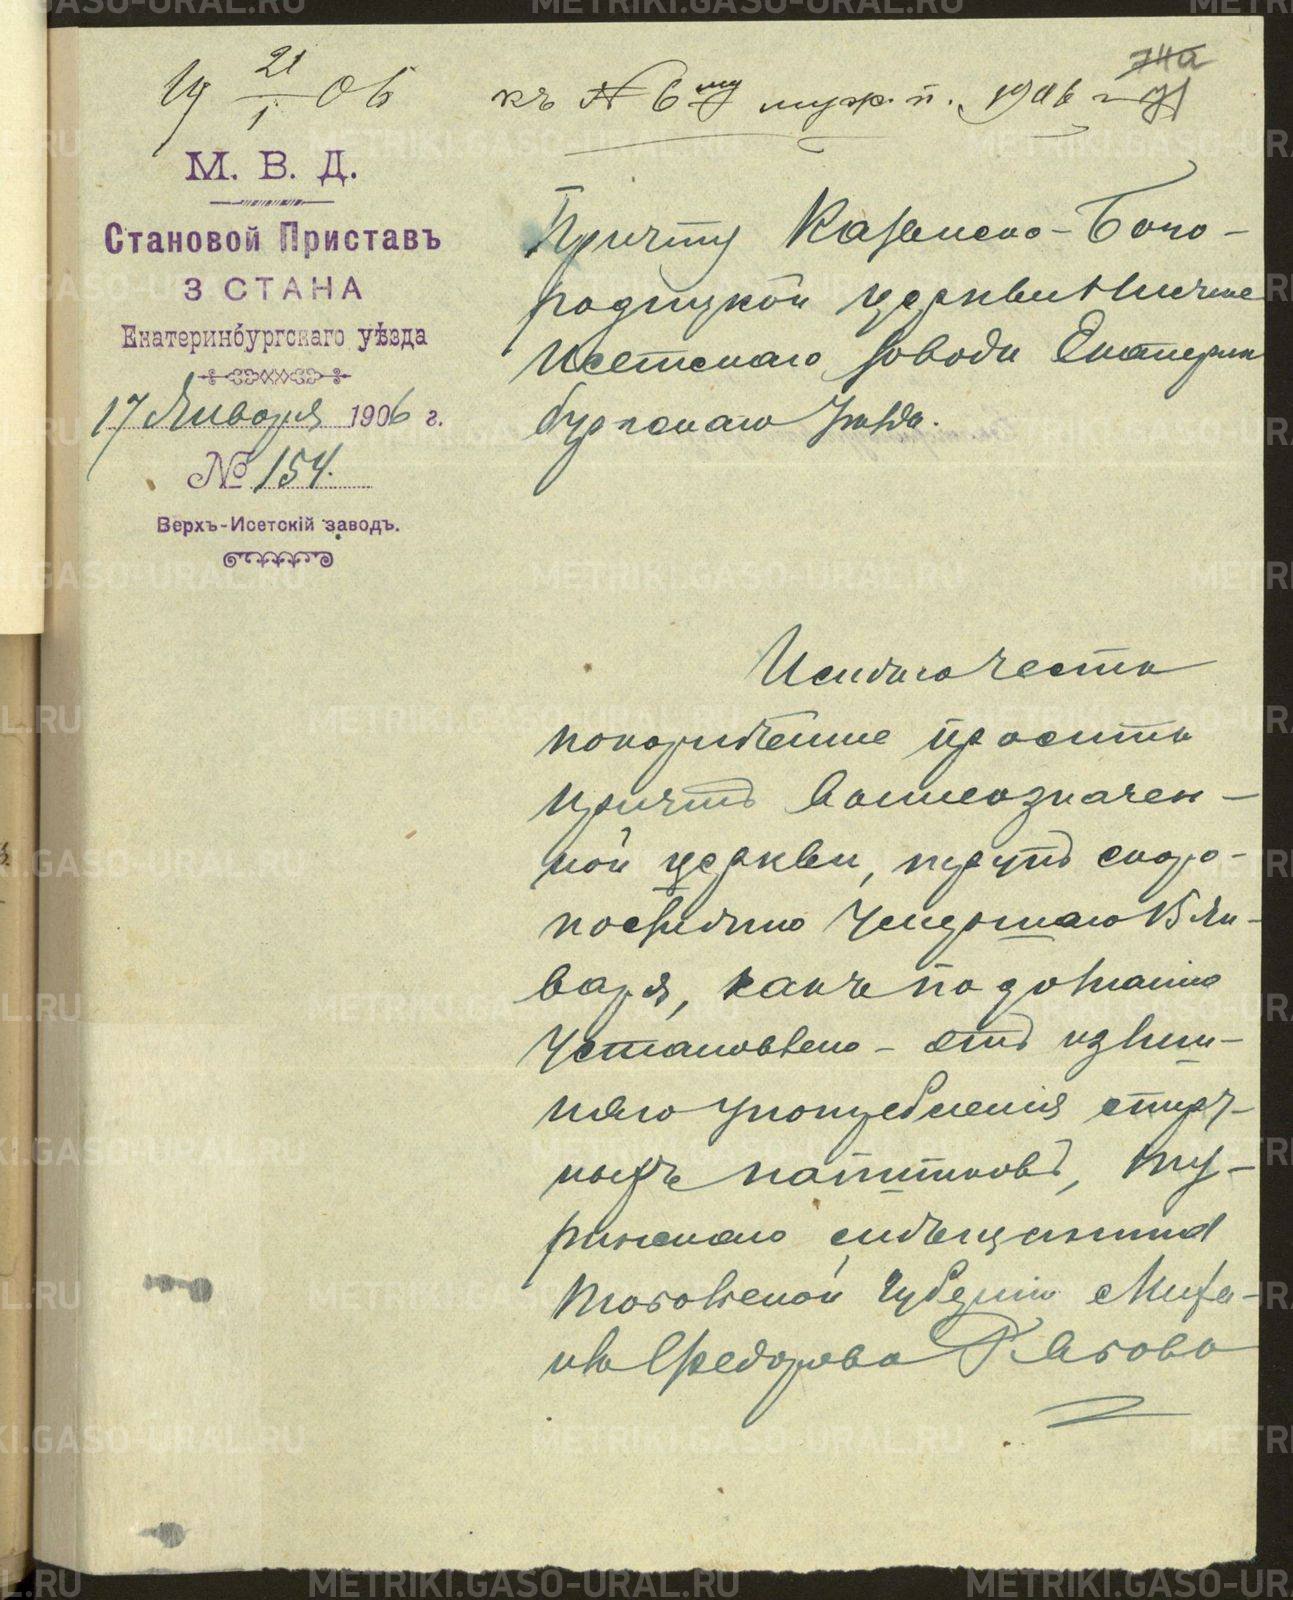 21
1 06
къ № 6му муж. п. 1906 г.
71а
71
М. В. Д.
Становой Приставъ
3 СТАНА
Екатеринбургскаго уѣзда
17 Января 1906 г.
№ 154.
Верхъ-Исетскій заводъ.
Причту Казанско-Бого-
родицкой церкви Нижне
Исетскаго завода Екатерин
бургскаго Уѣзда.
Имѣю честь
покорнѣйше просить
причтъ вышеозначен-
ной церкви, трупъ скоро-
постижно Умершаго 15 Ян-
варя, какъ по дознанію
Установлено - отъ излиш-
няго употребленія спирт-
ныхъ напитковъ, Ту-
ринскаго мѣщанина
Тобольской губерніи Миха-
ила Федорова
METRIKI.GASO-URAL.RU